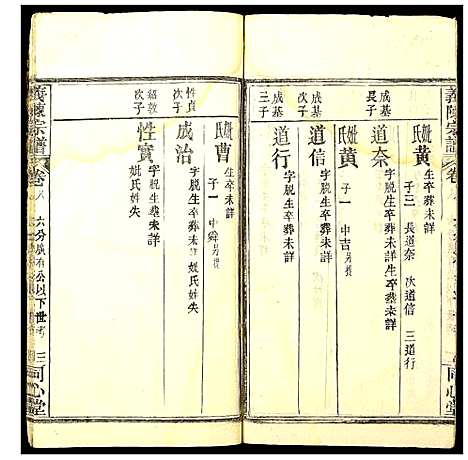 義陳宗譜
卷
同心堂
妣黃氏
生卒葬未詳
子三 長道奈 次道信 三道行
成基長子
道奈
字脱生卒葬未詳
妣黃氏
生卒葬未詳
子一 中吉
成基次子
道信
字脱生卒葬未詳
成基三子
道行
字脱生卒葬未詳
妣曹氏
生卒未詳
子一 中
性貞次子
成治
字脱生卒葬未詳妣氏失
紹敦次子
性實
字脱生葬未詳
妣氏姓失
義陳宗譜
卷八
六分廣有公以下世
三
同心堂